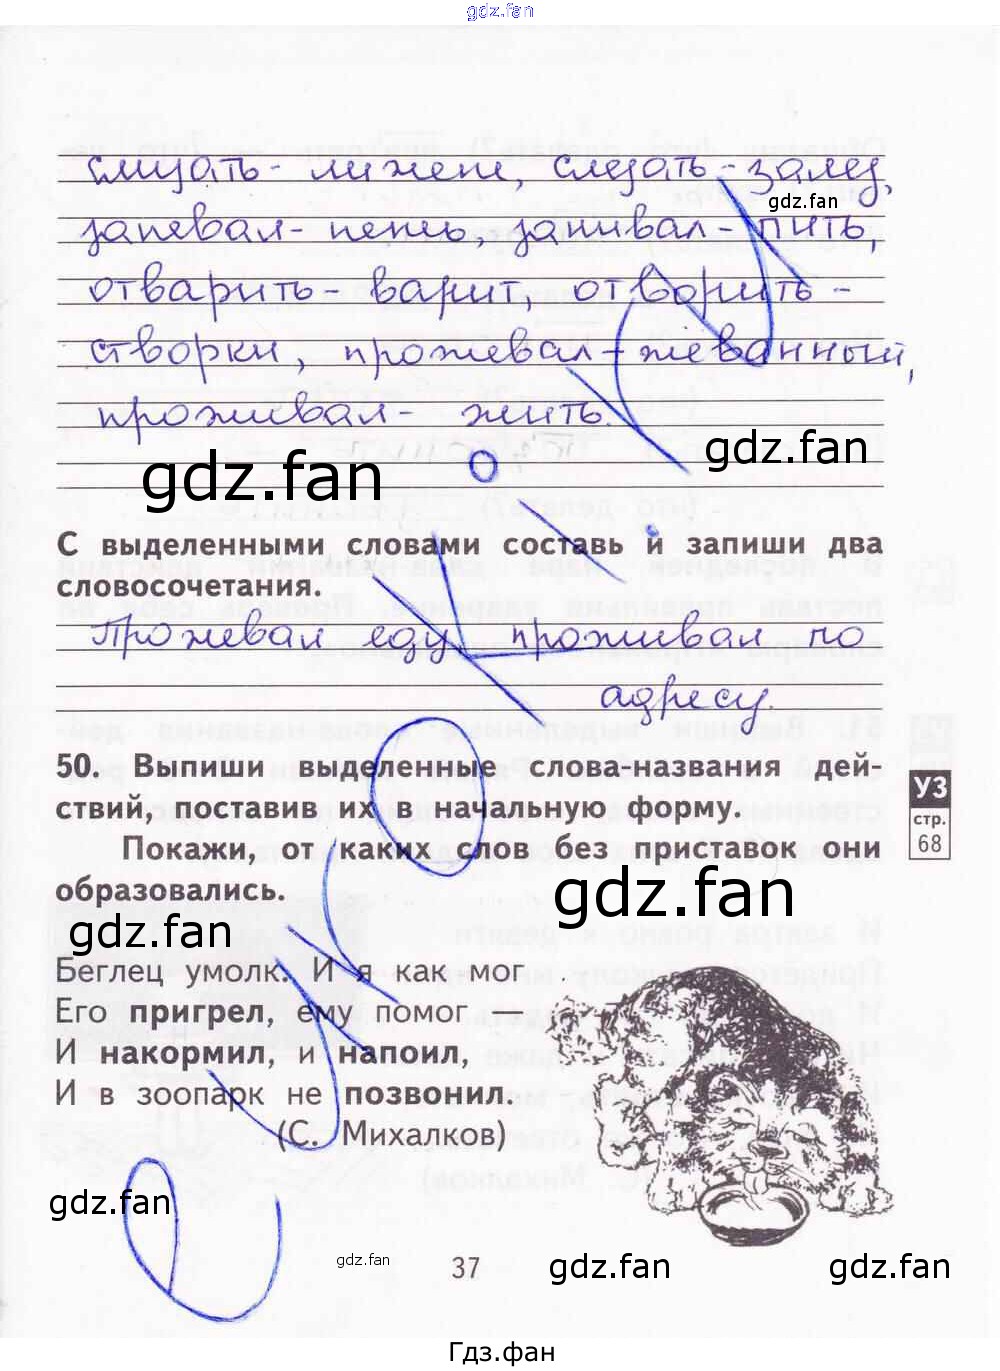 gdz.fan
слизать - лижет, слезать - залез,
gdz.fan
запевал - петь, запивал - пить,
отварить - варит, отворить -
створки, прожевал - жёванный,
проживал - жить.
gdz.fan
gdz.fan
С выделенными словами составь и запиши два
словосочетания.
Прожевал еду, проживал по
адресу.
50. Выпиши выделенные слова-названия дей-
ствий, поставив их в начальную форму.
УЗ
стр.
68
Покажи, от каких слов без приставок они
образовались.
gdz.fan
gdz.fan
Беглец умолк. И я как мог
Его пригрел, ему помог
И накормил, и напоил,
И в зоопарк не позвонил.
(С. Михалков)
gdz.fan
gdz.fan
37
gdz.fan
gdz.fan
Гдз.фан